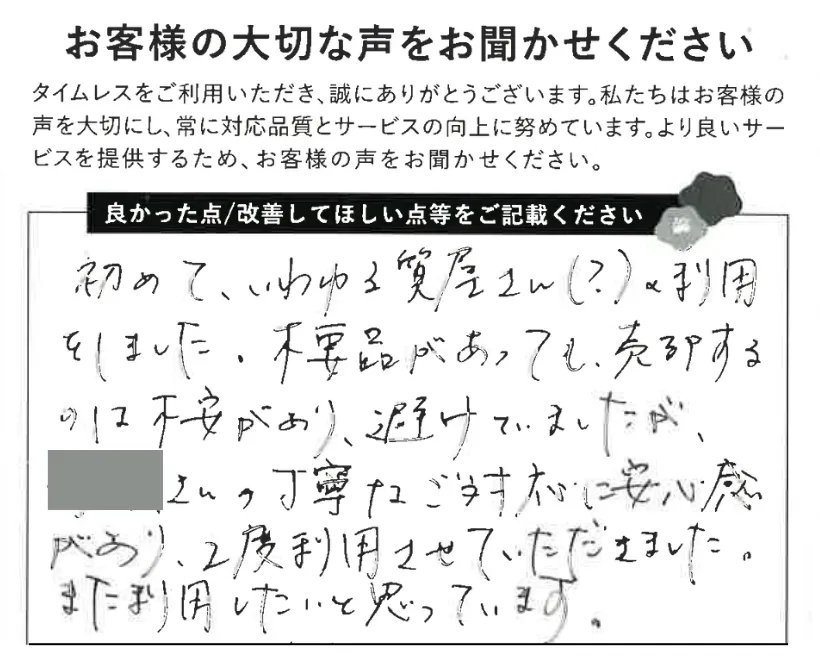 お客様の大切な声をお聞かせください
タイムレスをご利用いただき、誠にありがとうございます。私たちはお客様の
声を大切にし、常に対応品質とサービスの向上に努めています。より良いサー
ビスを提供するため、お客様の声をお聞かせください。
良かった点/改善してほしい点等をご記載ください
初めて、いわゆる質屋さん(?)の利用
をしました。不要品があっても、売却する
のは不安があり、避けていましたが、
さんの丁寧なご対応に安心感
があり、2度利用させていただきました。
また利用したいと思っています。